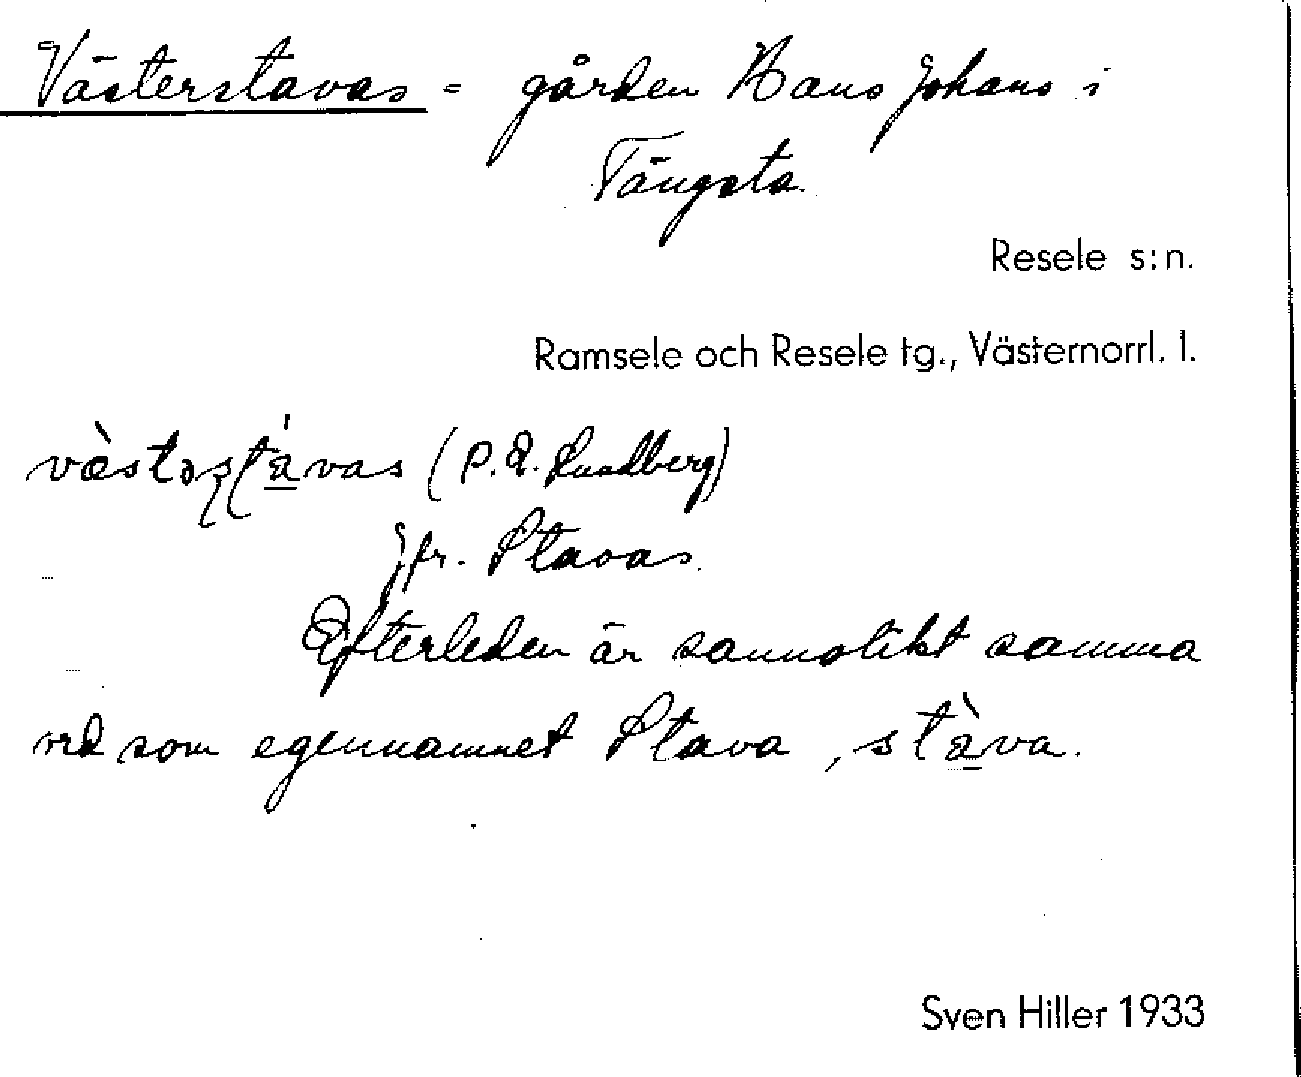 Västerstavas = gården Hans Johans i
Tängsta.
Resele s:n.
Ramsele och Resele tg., Västernorrl. l.
(P. E. Lundberg)
Jfr. Stavas.
Efterleden är sannolikt samma
ord som egennamnet Stava, stàva.
Sven Hiller 1933